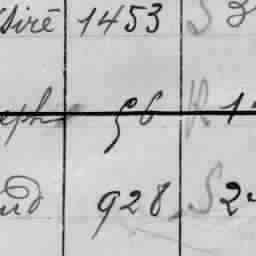 siré 1453 S 3
eph 56 R 1
ud 928 S 2